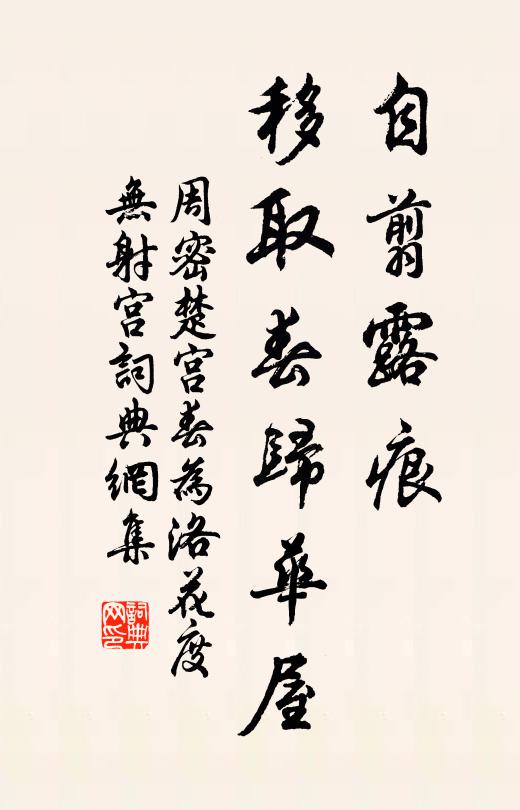 自翦露痕
移取春歸華屋
周密楚宮春為洛花度
無射宮詞典網集
詞典網印